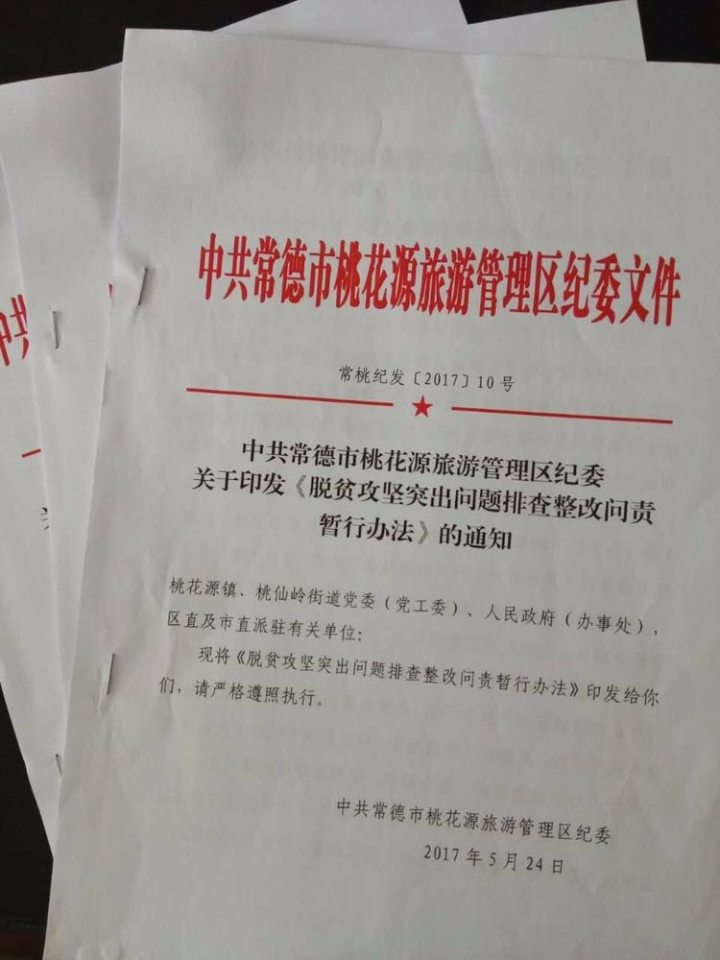 中共常德市桃花源旅游管理区纪委文件
常桃纪发〔2017〕10号
中共常德市桃花源旅游管理区纪委
关于印发《脱贫攻坚突出问题排查整改问责
暂行办法》的通知
桃花源镇、桃仙岭街道党委（党工委）、人民政府（办事处），
区直及市直派驻有关单位：
现将《脱贫攻坚突出问题排查整改问责暂行办法》印发给你
们，请严格遵照执行。
中共常德市桃花源旅游管理区纪委
2017年5月24日
中共